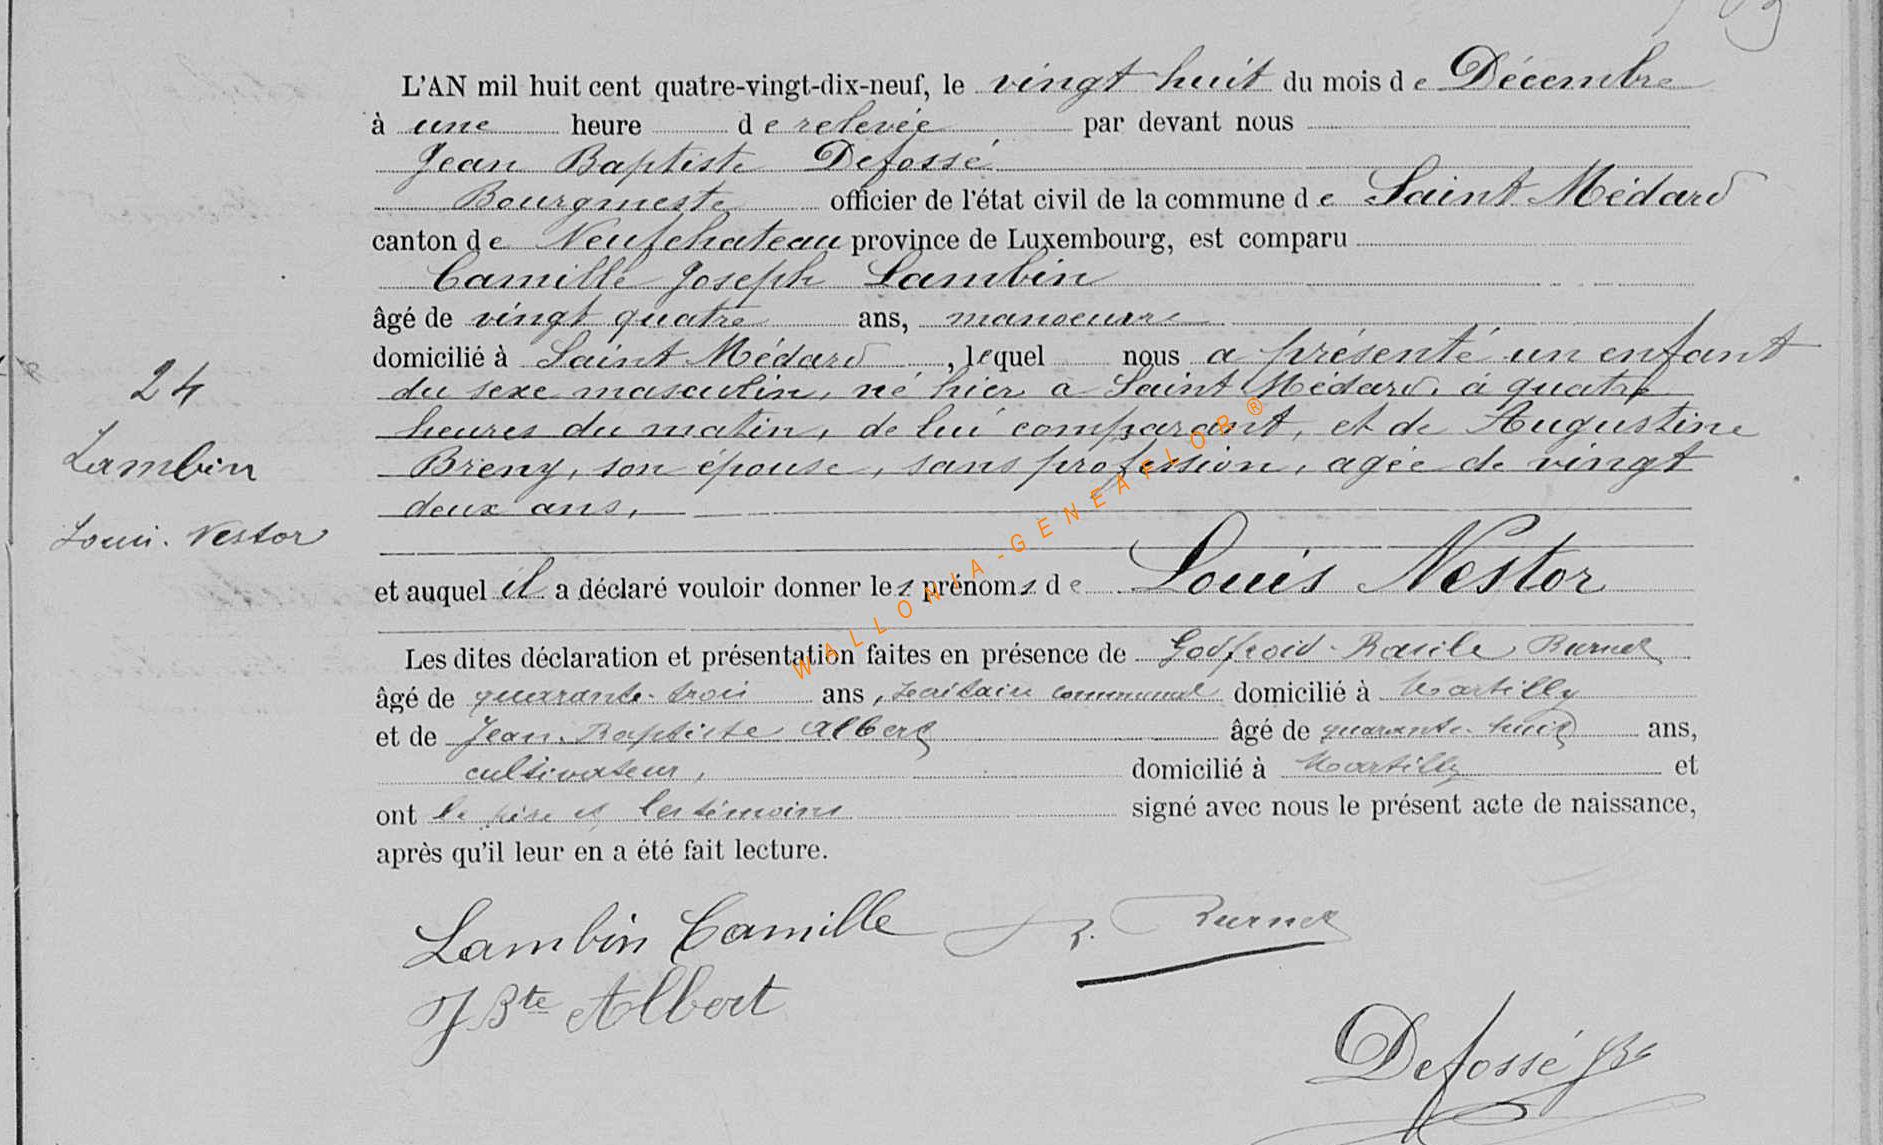 L'AN mil huit cent quatre-vingt-dix-neuf, le vingt huit du mois de Décembre
à une heure de relevée par devant nous
Jean Baptiste Defossé
Bourgmestre officier de l'état civil de la commune de Saint Médard
canton de Neufchateau province de Luxembourg, est comparu
Camille Joseph Lambin
âgé de vingt quatre ans, manoeuvre
domicilié à Saint Médard, lequel nous a présenté un enfant
du sexe masculin, né hier a Saint Médard, à quatre
heures du matin, de lui comparant, et de Augustine
Breny, son épouse, sans profession, agée de vingt
deux ans,
24
Lambin
Louis. Nestor
et auquel il a déclaré vouloir donner les prénoms de Louis Nestor
Les dites déclaration et présentation faites en présence de Godfroid Burnet
âgé de quarante-trois ans, secrétaire communal domicilié à Martilly
et de Jean-Baptiste Albert âgé de quarante-huit ans,
cultivateur, domicilié à Martilly et
ont le père et les témoins signé avec nous le présent acte de naissance,
après qu'il leur en a été fait lecture.
Lambin Camille R. Burnet
J Bte Albert
Defossé JB
WALLONIA-GENEAFLOR ®